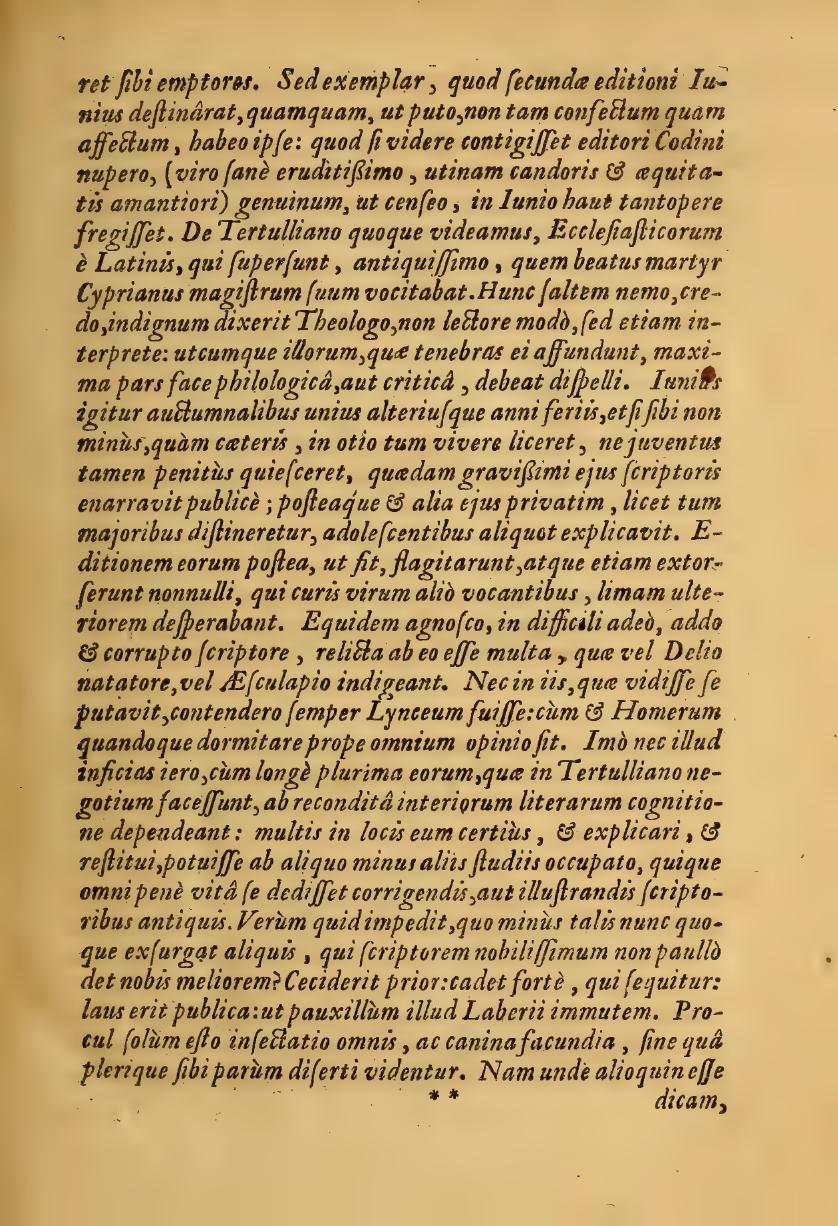 ret ſibi emptores. Sed exemplar, quod ſecundæ editioni Iu-
nius deſtinârat, quamquam, ut puto, non tam confectum quam
affectum, habeo ipſe: quod ſi videre contigiſſet editori Codini
nupero, (viro ſanè eruditißimo, utinam candoris & æquita-
tis amantiori) genuinum, ut cenſeo, in Iunio haut tantopere
fregiſſet. De Tertulliano quoque videamus, Eccleſiaſticorum
è Latinis, qui ſuperſunt, antiquiſſimo, quem beatus martyr
Cyprianus magiſtrum ſuum vocitabat. Hunc ſaltem nemo, cre-
do, indignum dixerit Theologo, non lectore modò, ſed etiam in-
terprete: utcumque illorum, quæ tenebras ei affundunt, maxi-
ma pars face philologicâ, aut criticâ, debeat diſpelli. Iunius
igitur auctumnalibus unius alteriuſque anni feriis, etſi ſibi non
minùs, quàm cæteris, in otio tum vivere liceret, ne juventus
tamen penitùs quieſceret, quædam gravißimi ejus ſcriptoris
enarravit publicè; poſteaque & alia ejus privatim, licet tum
majoribus diſtineretur, adoleſcentibus aliquot explicavit. E-
ditionem eorum poſtea, ut fit, flagitarunt, atque etiam extor-
ſerunt nonnulli, qui curis virum aliò vocantibus, limam ulte-
riorem deſperabant. Equidem agnoſco, in difficili adeò, addo
& corrupto ſcriptore, relicta ab eo eſſe multa, quæ vel Delio
natatore, vel Æſculapio indigeant. Nec in iis, quæ vidiſſe ſe
putavit, contendero ſemper Lynceum fuiſſe: cùm & Homerum
quandoque dormitare prope omnium opinio ſit. Imò nec illud
inficias iero, cùm longè plurima eorum, quæ in Tertulliano ne-
gotium faceſſunt, ab reconditâ interiorum literarum cognitio-
ne dependeant: multis in locis eum certiùs, & explicari, &
reſtitui, potuiſſe ab aliquo minus aliis ſtudiis occupato, quique
omni penè vitâ ſe dediſſet corrigendis, aut illuſtrandis ſcripto-
ribus antiquis. Verùm quid impedit, quo minùs talis nunc quo-
que exſurgat aliquis, qui ſcriptorem nobiliſſimum non paullò
det nobis meliorem? Ceciderit prior: cadet fortè, qui ſequitur:
laus erit publica: ut pauxillùm illud Laberii immutem. Pro-
cul ſolùm eſto inſectatio omnis, ac canina facundia, ſine quâ
plerique ſibi parùm diſerti videntur. Nam unde alioquin eſſe
* * dicam,